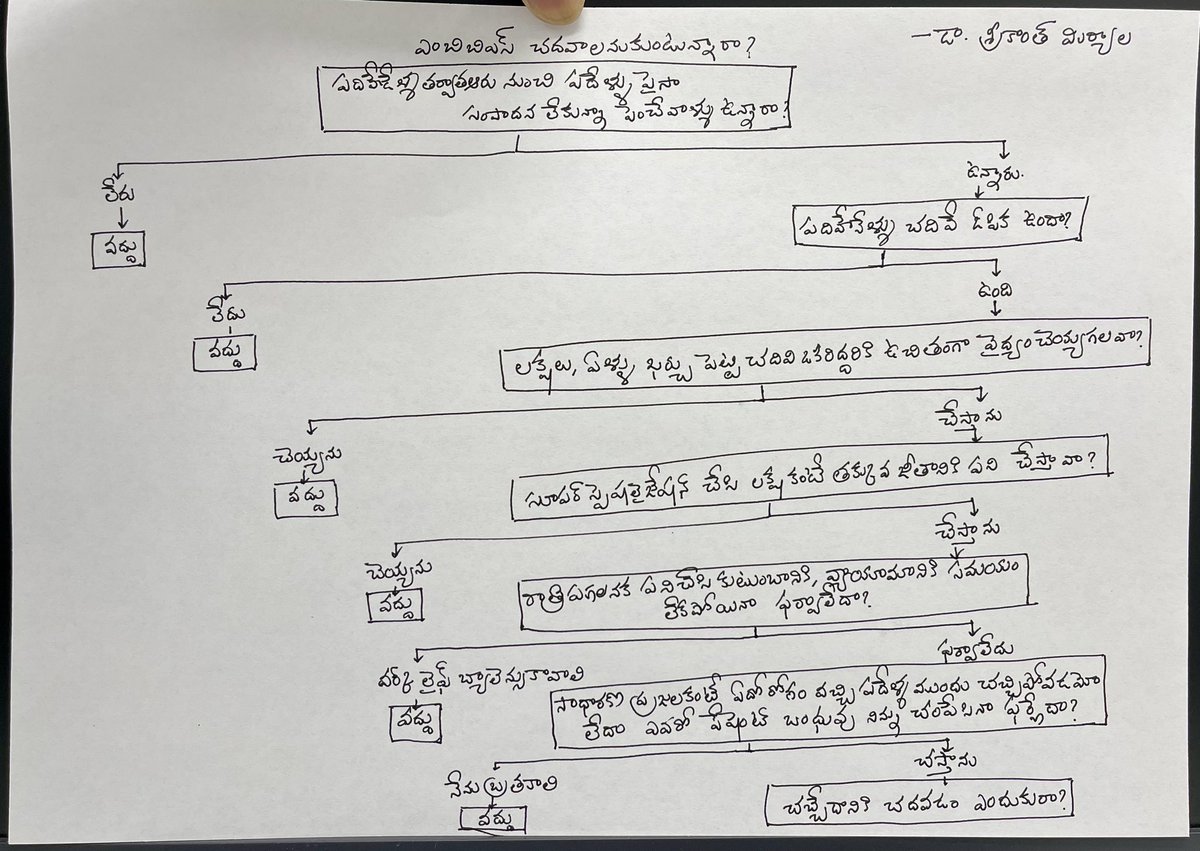 ఎంబిబిఎస్ చదవాలనుకుంటున్నారా?
- డా. శ్రీకాంత్ మిర్యాల
పదిహేడేళ్ళ తర్వాత ఆరు నుంచి పదేళ్ళు పైసా
సంపాదన లేకున్నా పెంచేవాళ్ళు ఉన్నారా?
లేరు
ఉన్నారు.
వద్దు
పదిహేనేళ్ళు చదివే ఓపిక ఉందా?
లేదు
ఉంది
వద్దు
లక్షలు, ఏళ్ళు ఖర్చు పెట్టి చదివి ఒకరిద్దరికి ఉచితంగా వైద్యం చెయ్యగలవా?
చెయ్యను
చేస్తాను
వద్దు
సూపర్ స్పెషలైజేషన్ చేసి లక్ష కంటే తక్కువ జీతానికి పని చేస్తావా?
చెయ్యను
చేస్తాను
వద్దు
రాత్రిపగలనక పనిచేసి కుటుంబానికి, వ్యాయామానికి సమయం
లేకపోయినా ఫర్వాలేదా?
వర్క్ లైఫ్ బ్యాలెన్సు కావాలి
ఫర్వాలేదు
వద్దు
సాధారణ ప్రజలకంటే ఏదో రోగం వచ్చి పదేళ్ళ ముందు చచ్చిపోవడమో
లేదా ఎవరో పేషెంట్ బంధువు నిన్ను చంపేసినా ఫర్లేదా?
నేను బ్రతకాలి
చస్తాను
వద్దు
చచ్చేదానికి చదవడం ఎందుకురా?